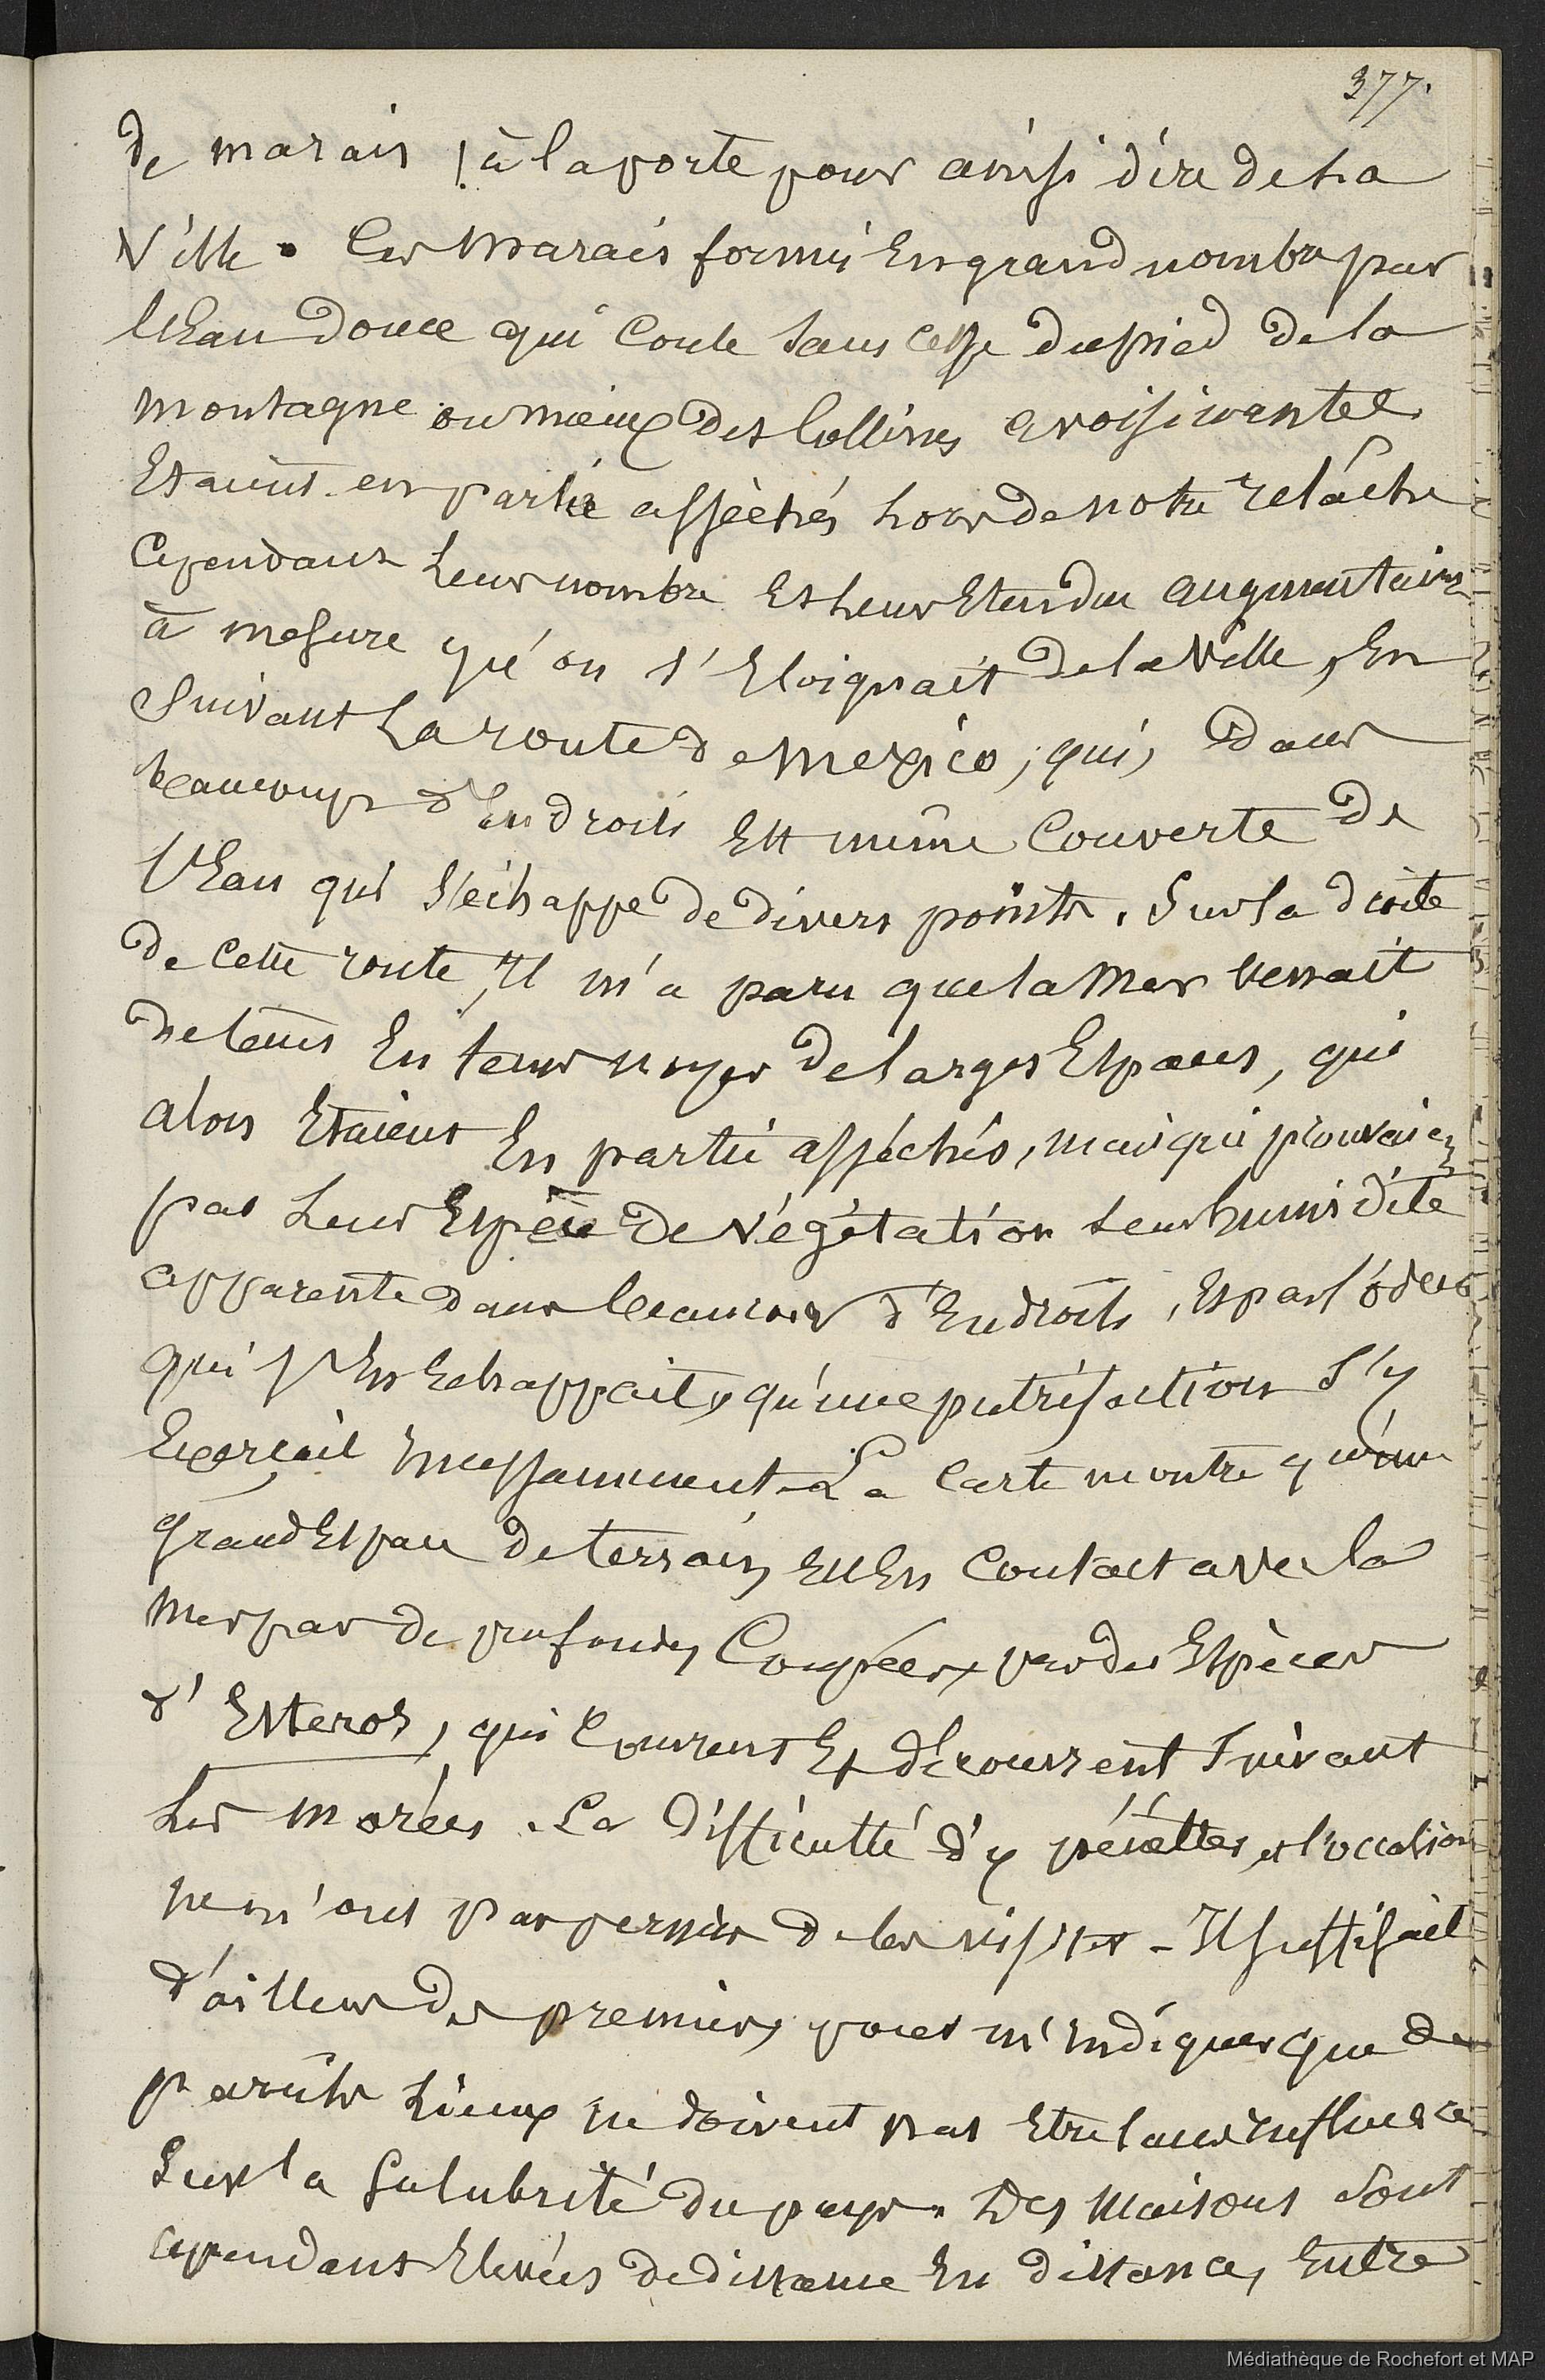 377.
de marais ! à la porte pour ainsi dire de la
Ville. Ces marais formés En grand nombre par
l'Eau douce qui Coule sans cesse du pied de la
montagne ou mieux des Collines avoisinantes
Etaient en partie assèchés lors de notre relâche
Cependant leur nombre Et leur Etendue augmentaient
à mesure qu'on s'Eloignait de la Ville, En
suivant La route de Mexico, qui, dans
beaucoup d'Endroits Est même Couverte de
l'Eau qui s'échappe de divers points. Sur la droite
de Cette route, Il m'a paru que la Mer venait
de tems En tems noyer de larges Espaces, qui
alors Etaient En partie asséchés, mais qui prouvaient
par Leur Espèce de Végétation leur humidité
apparente dans beaucoup d'Endroits, Et par l'odeur
qui s'En Echappait, qu'une putréfaction s'y
Exerçait Incessamment. La Carte montre qu'un
grand Espace de terrain Est En Contact avec la
Mer par de profondes Coupées, par des Espèces
d'Esteros, qui Couvrent Et découvrent suivant
Les marées. La difficulté d'y pénétrer, et l'occasion
ne m'ont pas permis de les visiter - Il suffisait
d'ailleurs des premiers pour m'Indiquer que de
pareils Lieux ne doivent pas Etre sans Influence
sur la Salubrité du pays. Des maisons sont
cependant Elevées de distance En distance, Entre
Médiathèque de Rochefort et MAP